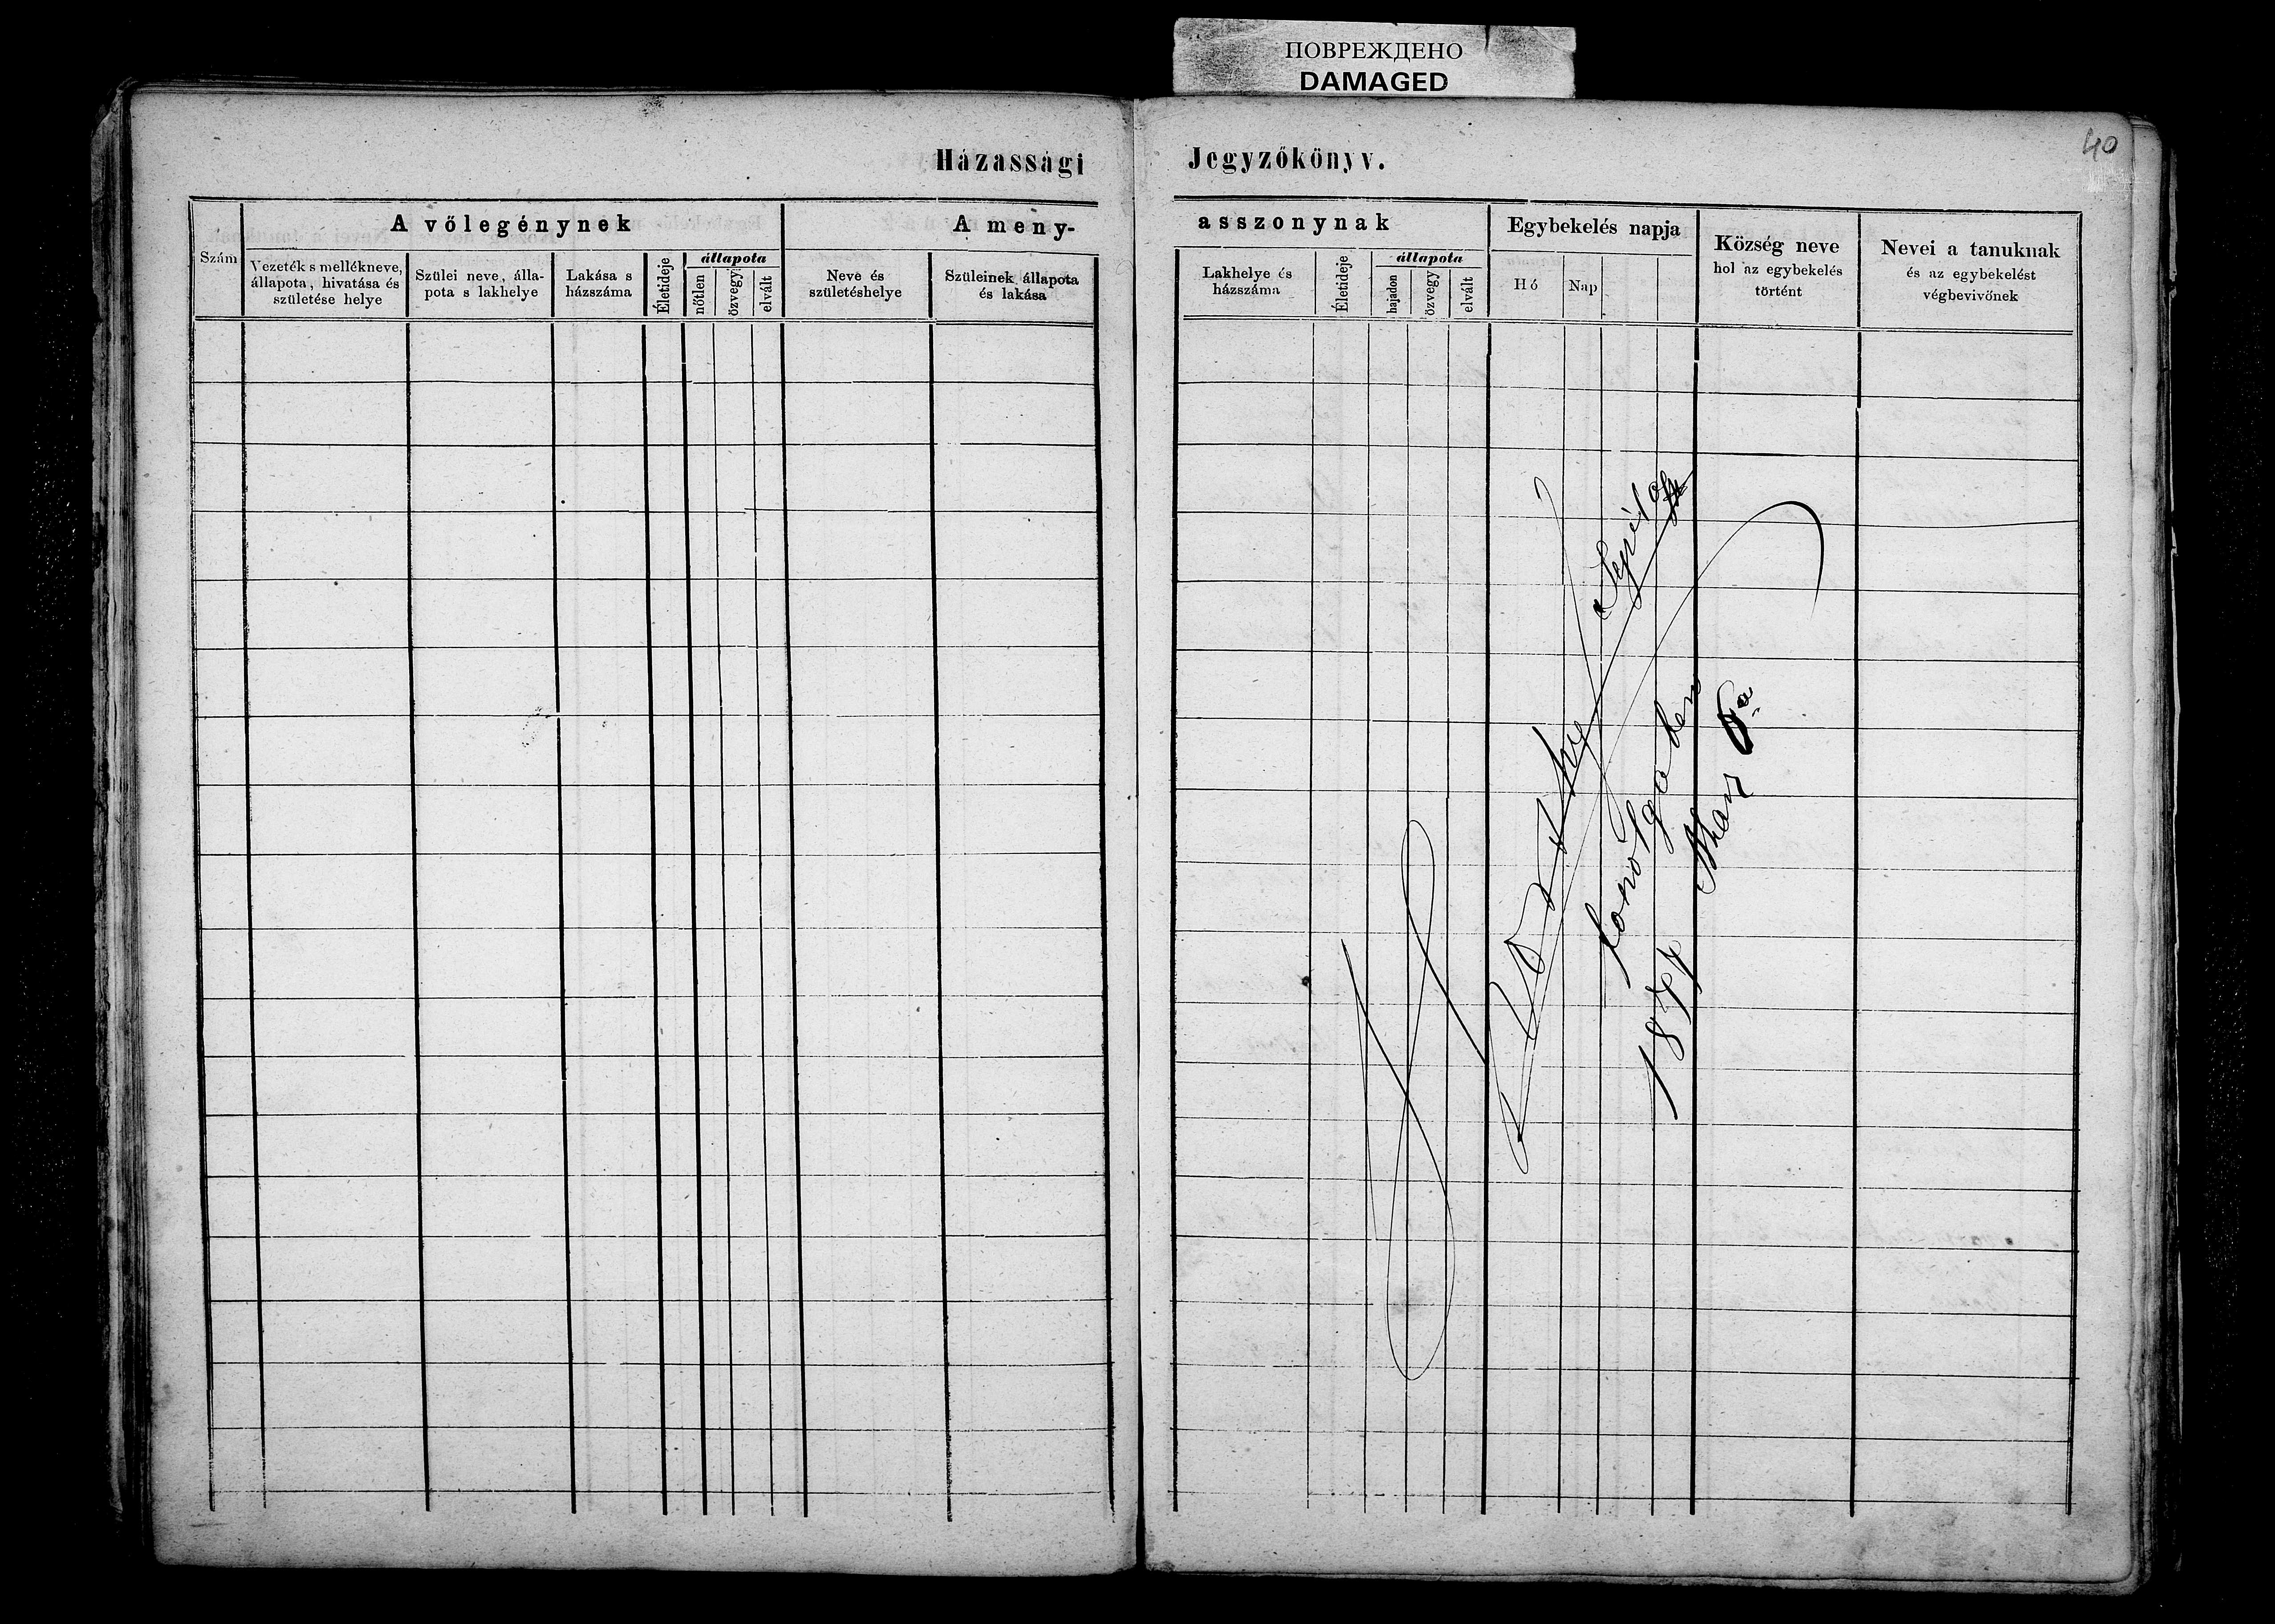 ПОВРЕЖДЕНО
DAMAGED
40
Házassági Jegyzőkönyv.
Szám
A vőlegénynek
A meny-
asszonynak
Egybekelés napja
Község neve
hol az egybekelés
történt
Nevei a tanuknak
és az egybekelést
végbevivőnek
Vezeték s mellékneve,
állapota, hivatása és
születése helye
Szülei neve, álla-
pota s lakhelye
Lakása s
házszáma
Életideje
állapota
nőtlen
özvegy
elvált
Neve és
születéshelye
Szüleinek állapota
és lakása
Lakhelye és
házszáma
Életideje
állapota
hajadon
özvegy
elvált
Hó
Nap
1877